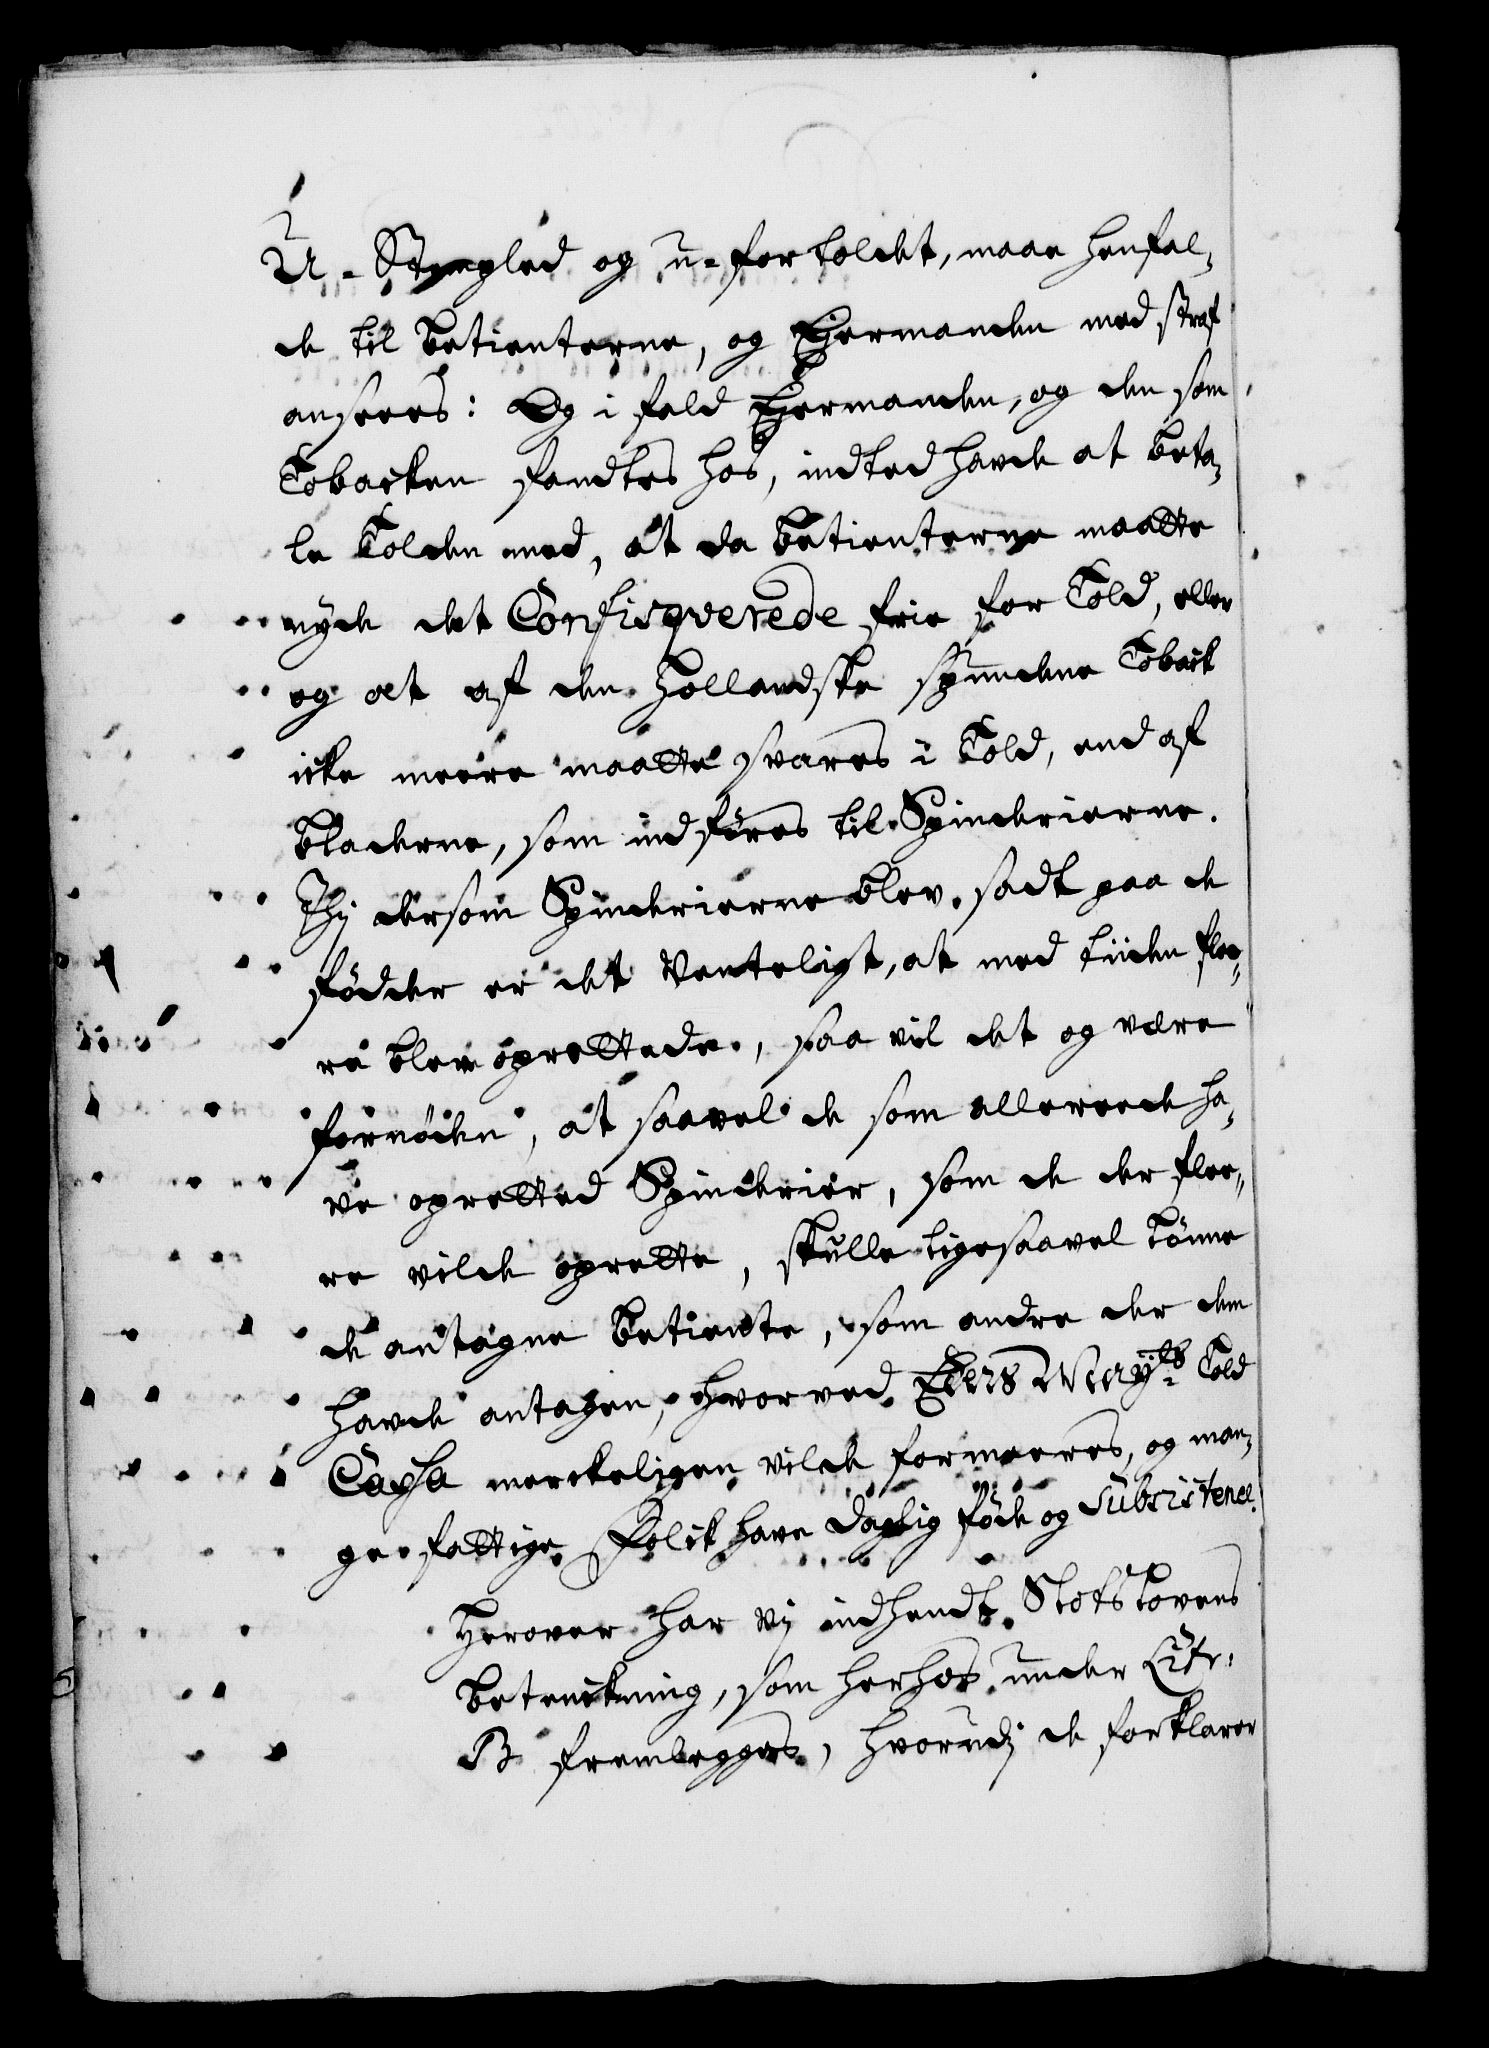 U-Stempled og u-fortoldet, maae henfal-
de til Betienterne, og Ejermanden med straf
ansees: Og i fald Ejermanden, og den som
Tobacken fandtes hos, indted havde at beta-
le Tolden med, at da Betienterne maatte
nyde det Confisqverede frie for Told, eller
og at af den Hollandske spundene Toback
icke meere maatte svares i Told, end af
Bladerne, som indføres til Spinderierne.
Thj dersom Spinderierne blev sadt paa de
fødder er det Venteligt, at med tiiden flee-
re blev oprettede, saa vil det og være
fornøden, at saavel de som allereede ha-
ve opretted Spinderier, som de der flee-
re vilde oprette, skulle ligesaavel lønne
de antagne Betiente, som andre der dem
havde antagen, hvorved Eders Mayts Told
Cassa merckeligen vilde formeeres, og man-
ge fattige Folck have daglig føde og Subsistence.
Herover har vj indhendt Slotslovens
betenckning, som herhos under Litr.
B fremlegges, hvorudj de forklarer